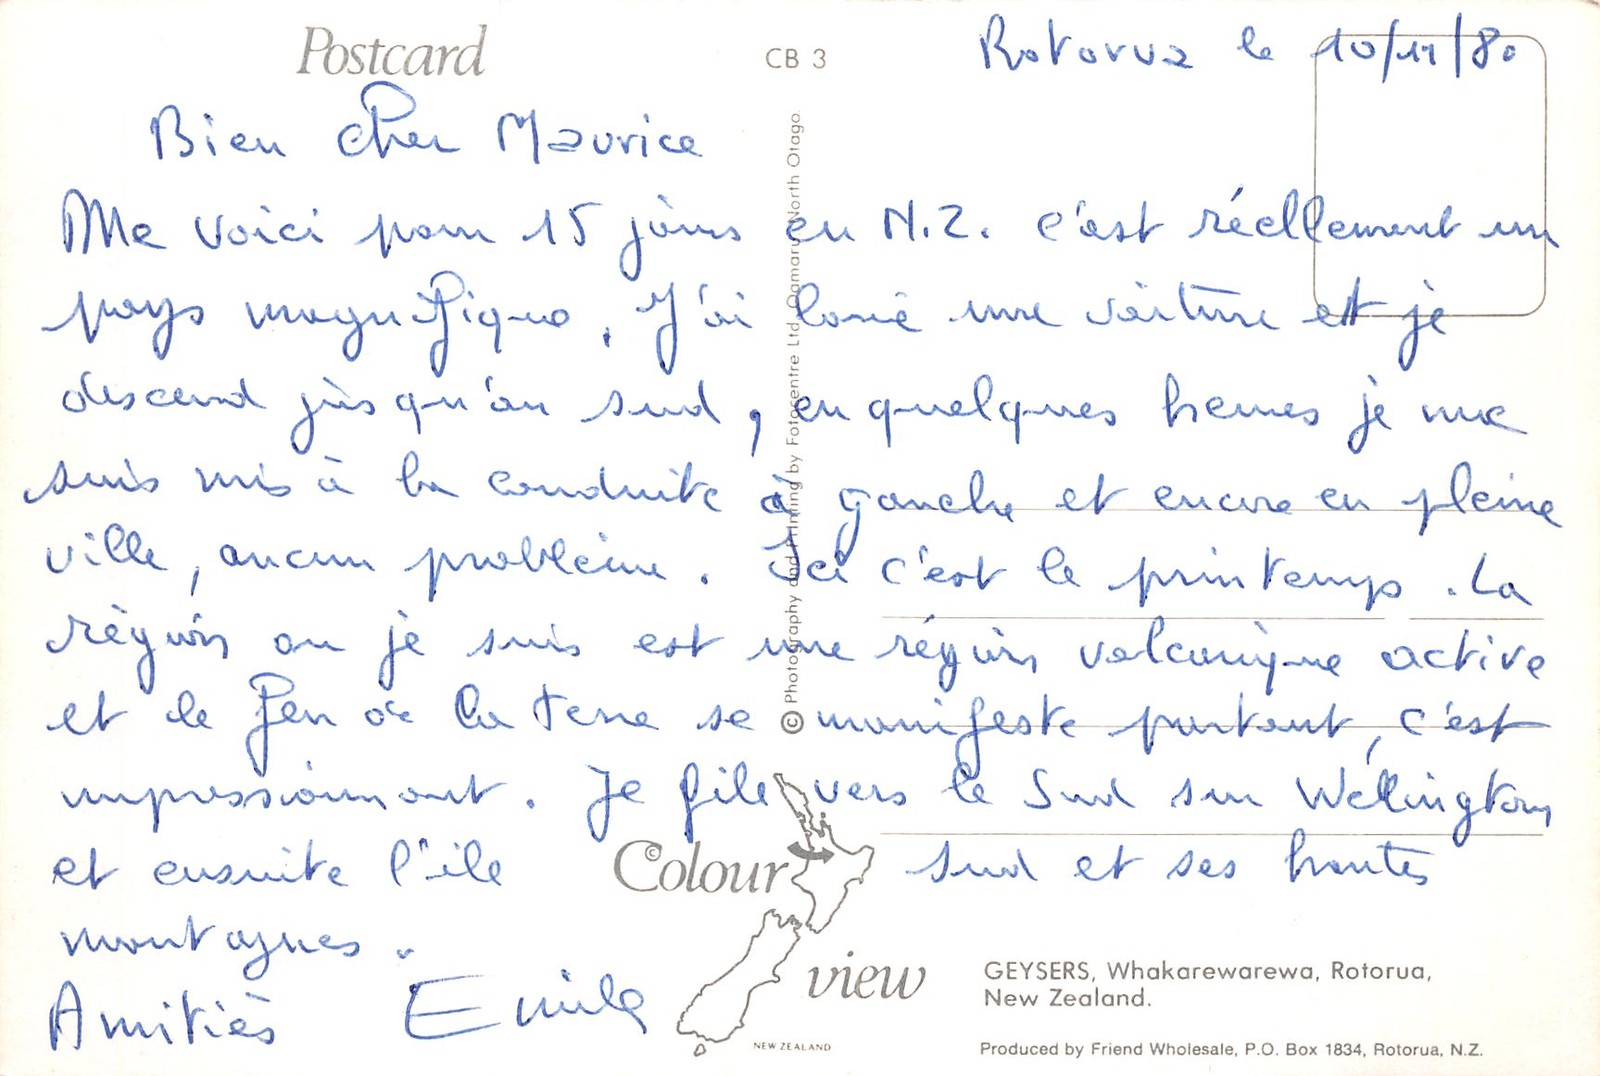 Postcard
CB 3
Rotorua le 10/11/80
Bien cher Maurice
Me voici pour 15 jours en N.Z. c'est réellement un
pays magnifique. J'ai loué une voiture et je
descend jusqu'au sud, en quelques heures je me
suis mis à la conduite à gauche et encore en pleine
ville, aucun problème. Ici c'est le printemps. La
région ou je suis est une région volcanique active
et le feu de la terre se manifeste partout, c'est
impressionnant. Je file vers le Sud sur Wellington
et ensuite l'ile sud et ses hautes
montagnes.
Amitiés Emile
© Photography and Printing by Fotocentre Ltd, Oamaru, North Otago.
Colour
©
view
NEW ZEALAND
GEYSERS, Whakarewarewa, Rotorua,
New Zealand.
Produced by Friend Wholesale, P.O. Box 1834, Rotorua, N.Z.